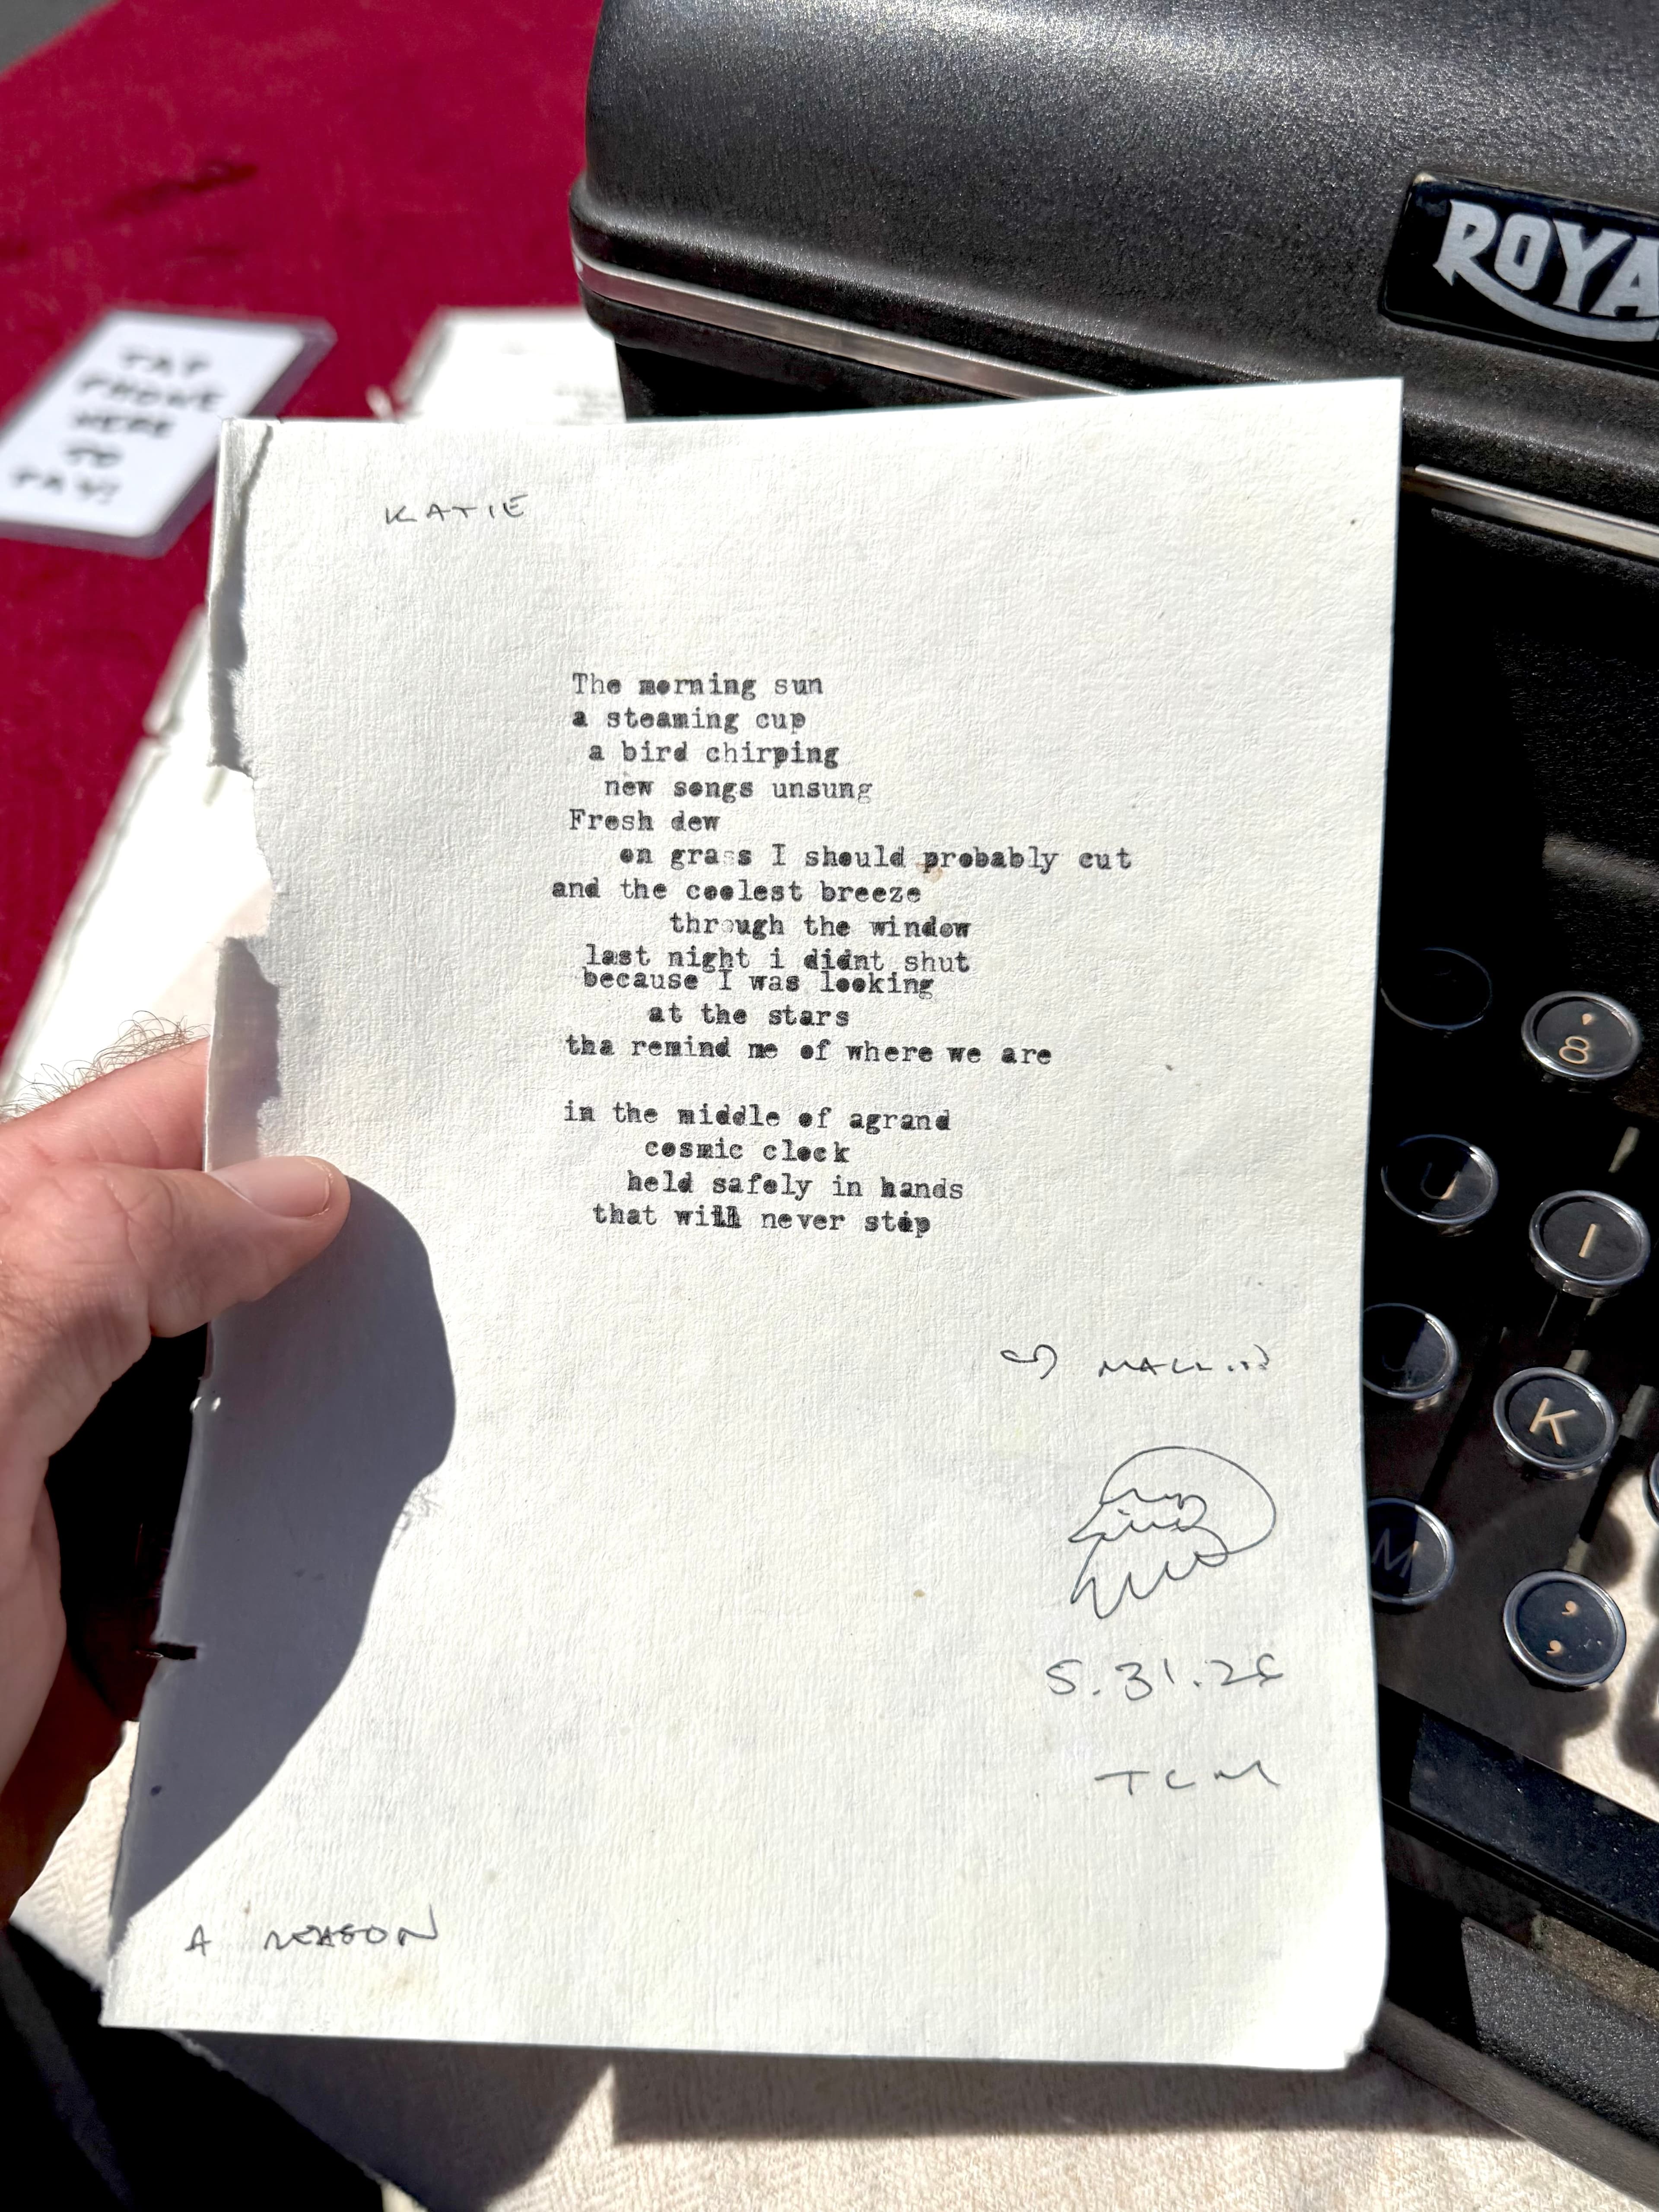 ROYA
TAP
PHONE
HERE
TO
PAY!
KATIE
The morning sun
a steaming cup
a bird chirping
new songs unsung
Fresh dew
on grass I should probably cut
and the coolest breeze
through the window
last night i didnt shut
because I was looking
at the stars
tha remind me of where we are
in the middle of agrand
cosmic clock
held safely in hands
that will never stop
5.31.25
TCM
A REASON
8
U
I
J
K
M